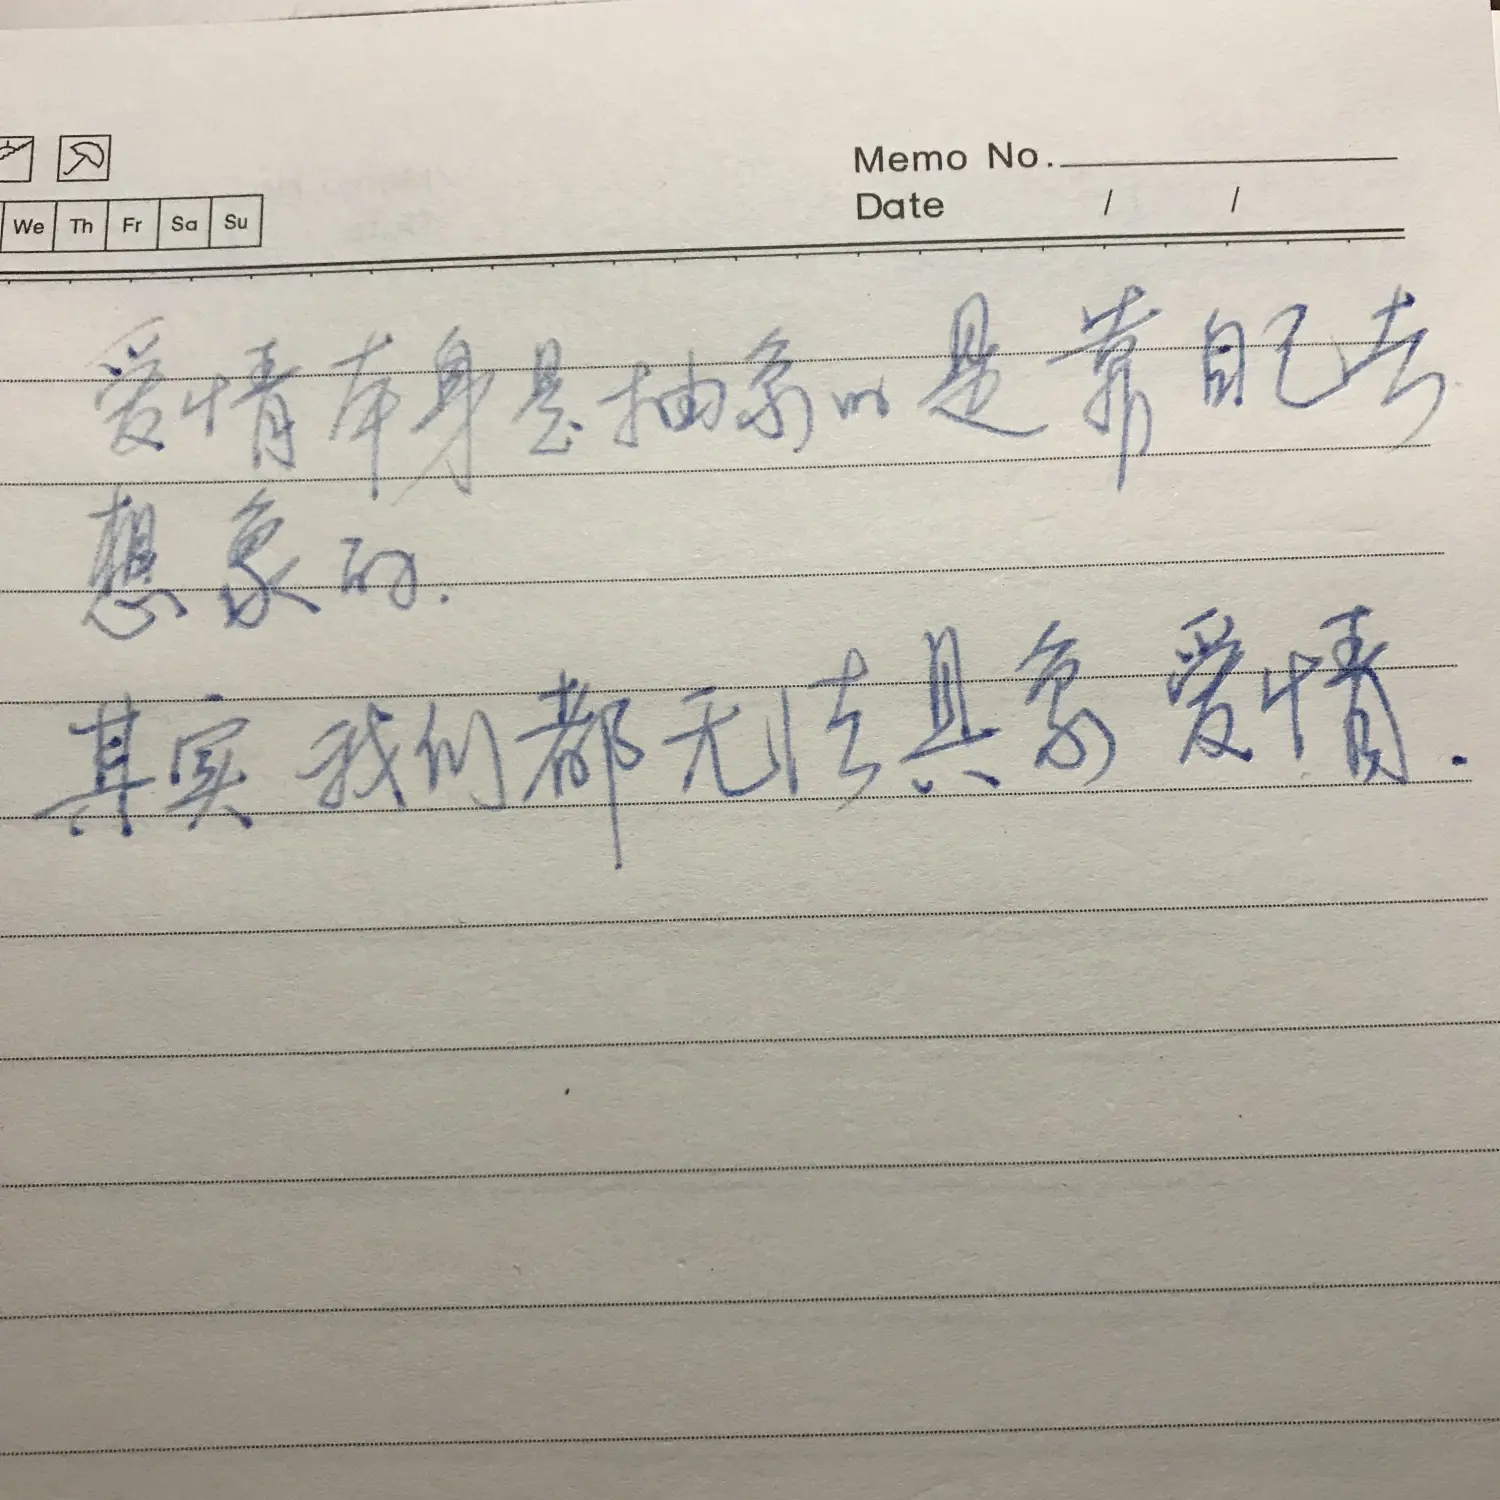 Memo No.
Date / /
We Th Fr Sa Su
爱情本身是抽象的是靠自己去
想象的.
其实我们都无法具象爱情.